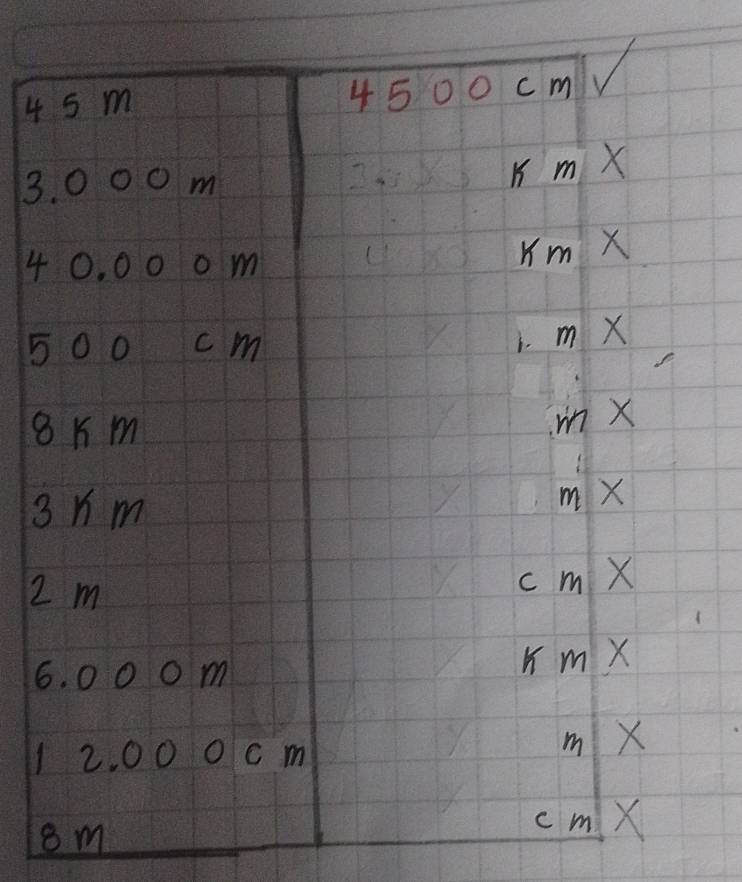 45 m 4500 cm ✓
3.000 m Km X
40.000 m Km X
500 cm m X
8 Km m X
3 Km m X
2 m cm X
6.000 m Km X
12.000 cm m X
8 m cm X